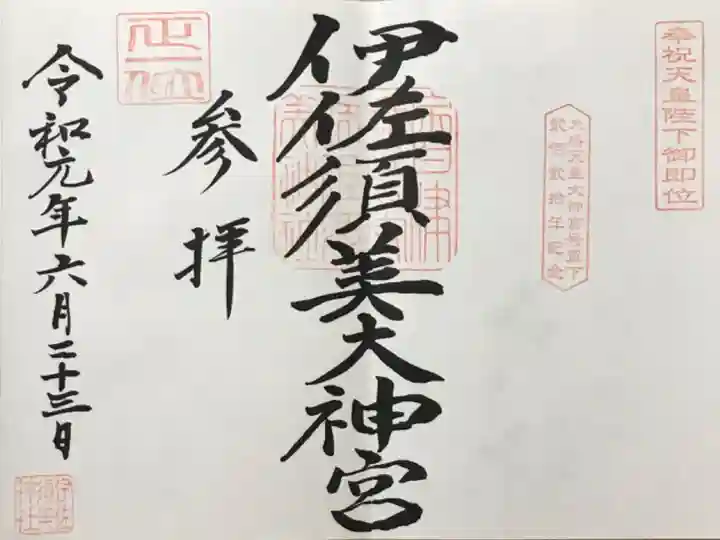 奉祝天皇陛下御即位
伊佐須美大神宮
参拝
正一位
令和元年六月二十三日